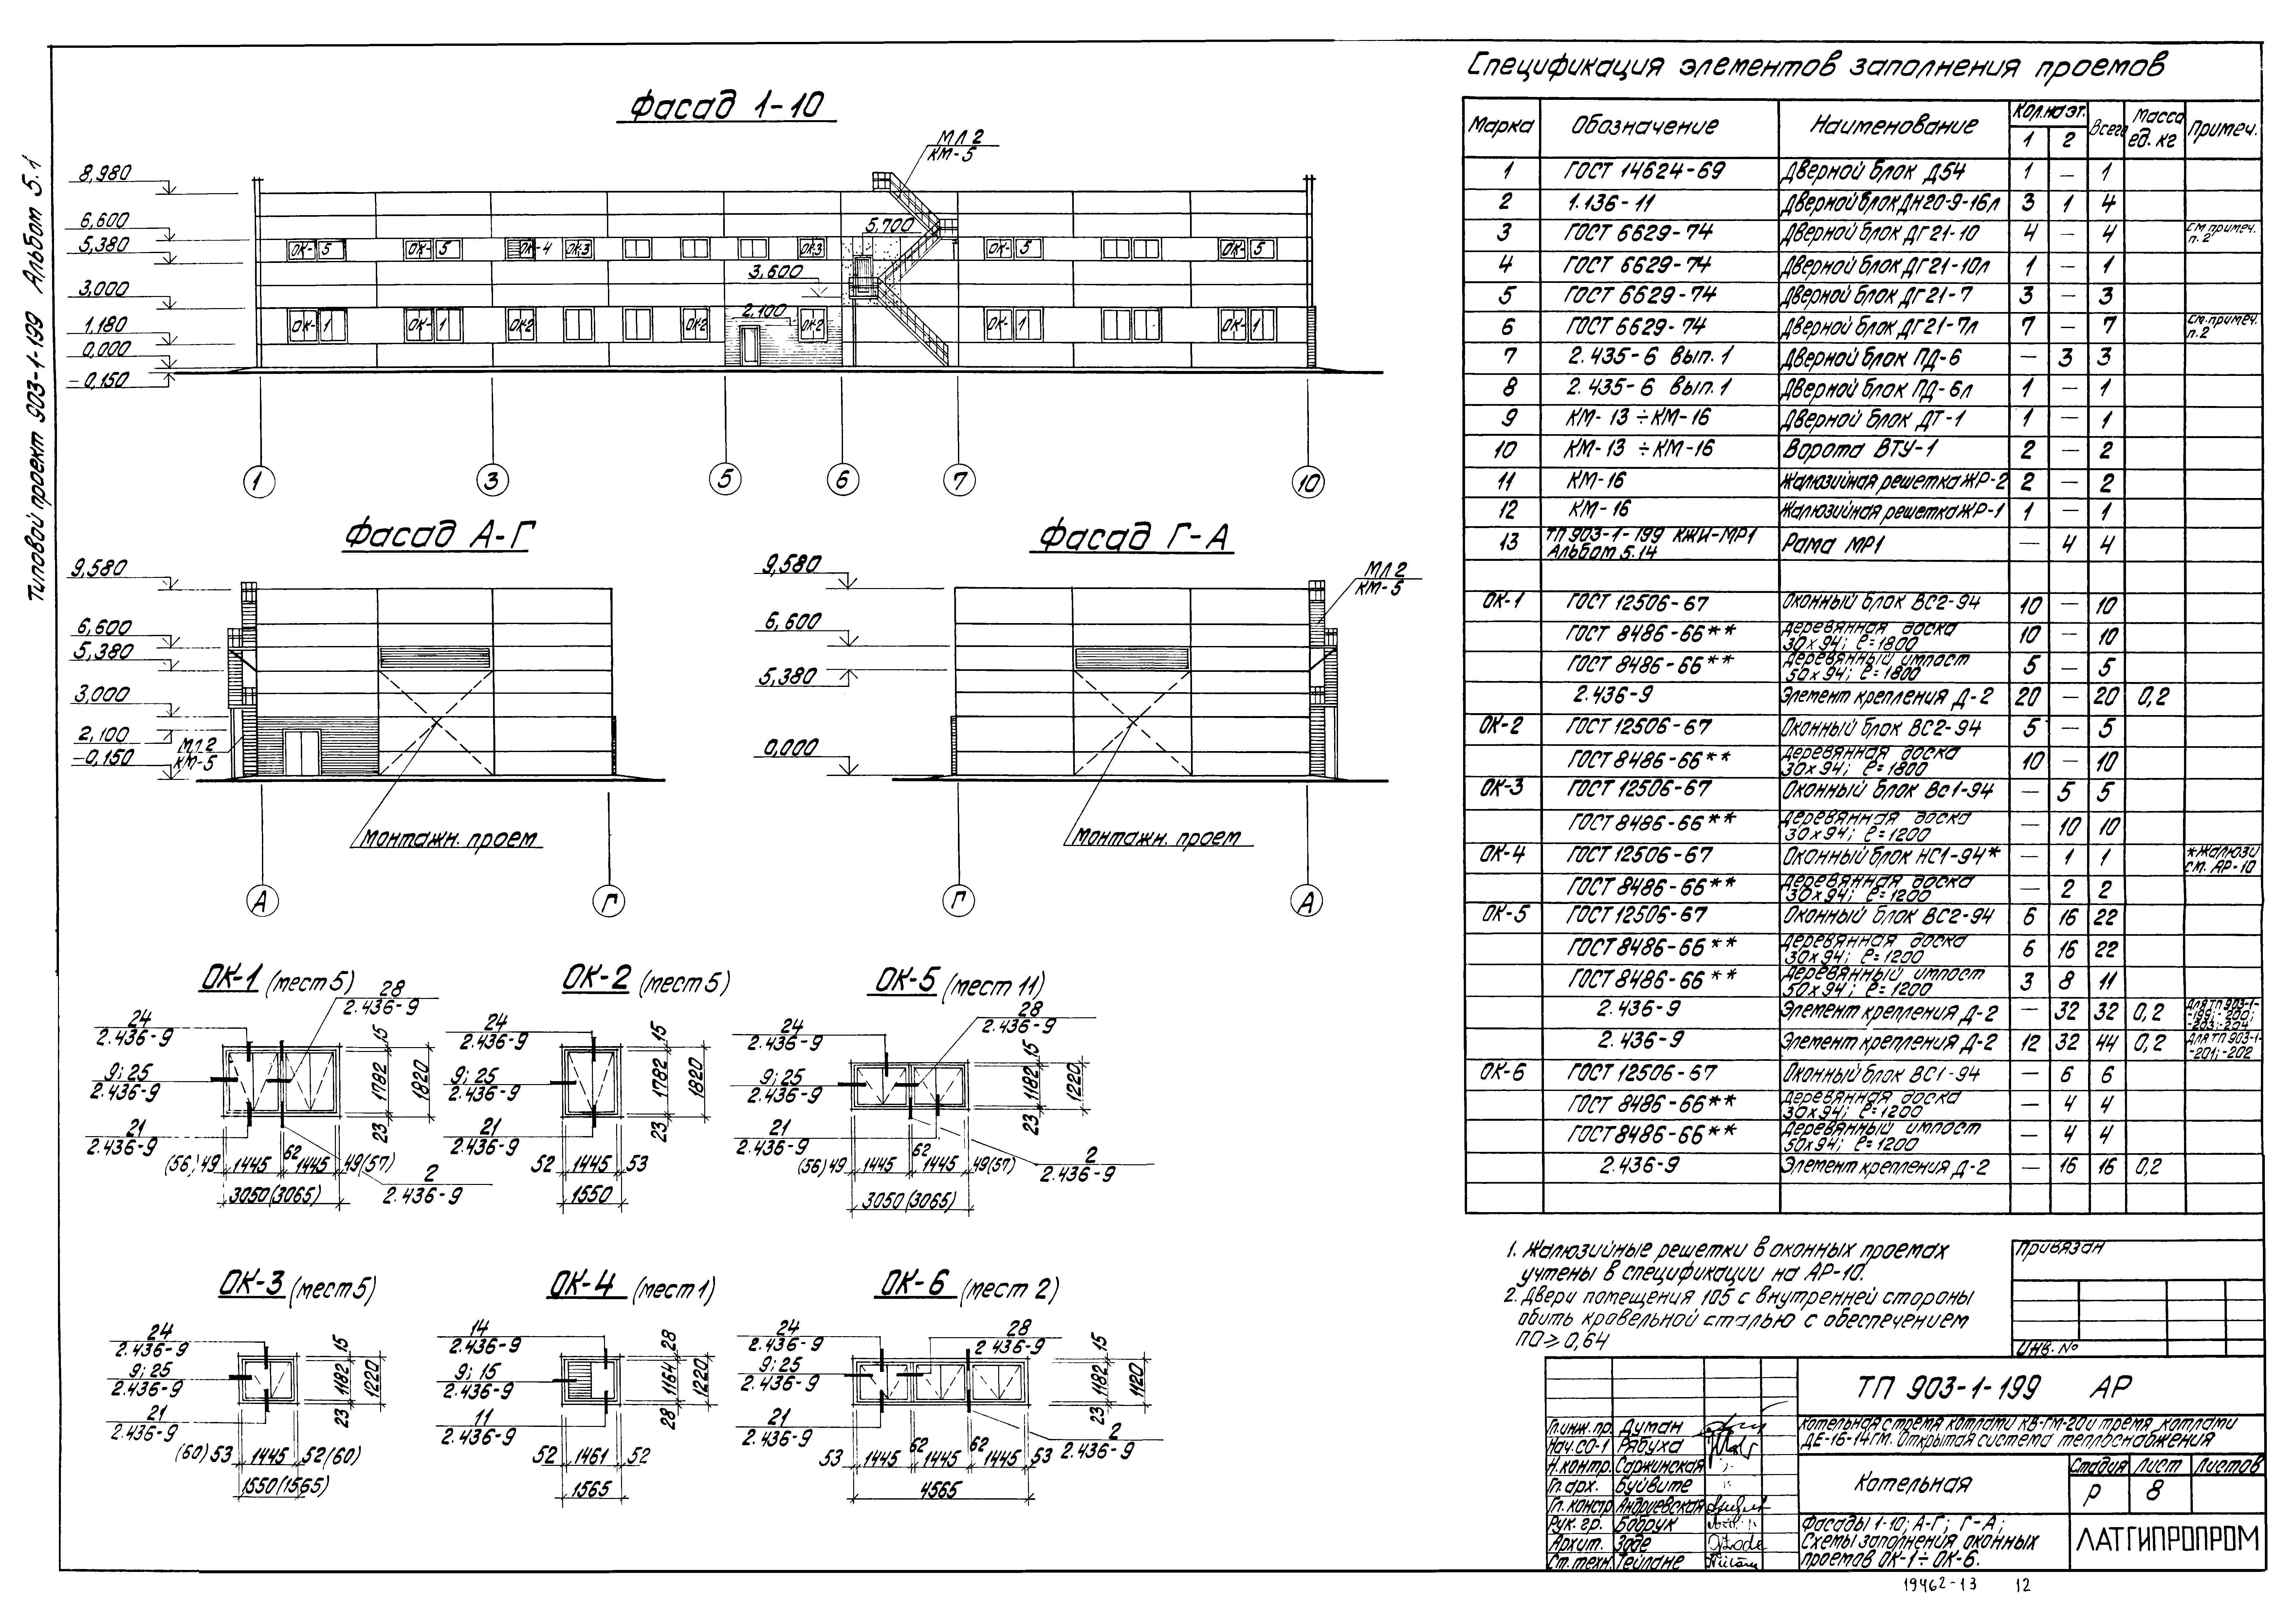 Типовой проект 903-1-199 Альбом 5.1
Фасад 1-10
8,980
6,600
5,380
3,000
1,180
0,000
-0,150
МЛ2
КМ-5
5,700
3,600
2,100
ОК-5 ОК-5 ОК-4 ОК3 ОК3 ОК-5 ОК-5
ОК-1 ОК-1 ОК-2 ОК-2 ОК-2 ОК-1 ОК-1
1 3 5 6 7 10
Фасад А-Г
9,580
6,600
5,380
3,000
2,100
-0,150
МЛ2
КМ-5
Монтажн. проем
А Г
Фасад Г-А
9,580
6,600
5,380
0,000
МЛ2
КМ-5
Монтажн. проем
Г А
ОК-1 (мест 5)
28
2.436-9
24
2.436-9
9; 25
2.436-9
21
2.436-9
2
2.436-9
15
1782
23
1820
(56) 49 1445 62 1445 49(57)
3050 (3065)
ОК-2 (мест 5)
24
2.436-9
9; 25
2.436-9
21
2.436-9
15
1782
23
1820
52 1445 53
1550
ОК-5 (мест 11)
28
2.436-9
24
2.436-9
9; 25
2.436-9
21
2.436-9
2
2.436-9
15
1182
23
1220
(56) 49 1445 62 1445 49(57)
3050 (3065)
ОК-3 (мест 5)
24
2.436-9
9; 25
2.436-9
21
2.436-9
15
1182
23
1220
(60) 53 1445 52(60)
1550 (1565)
ОК-4 (мест 1)
14
2.436-9
9; 15
2.436-9
11
2.436-9
28
1164
28
1220
52 1461 52
1565
ОК-6 (мест 2)
24
2.436-9
28
2 436-9
9; 25
2.436-9
21
2.436-9
2
2.436-9
15
1182
23
1120
53 1445 62 1445 62 1445 53
4565
Спецификация элементов заполнения проемов
Марка Обозначение Наименование Кол. на эт. 1 2 Всего Масса ед. кг Примеч.
1 ГОСТ 14624-69 Дверной блок Д54 1 — 1
2 1.136-11 Дверной блок ДН20-9-16л 3 1 4
3 ГОСТ 6629-74 Дверной блок ДГ21-10 4 — 4 см примеч. п. 2
4 ГОСТ 6629-74 Дверной блок ДГ21-10л 1 — 1
5 ГОСТ 6629-74 Дверной блок ДГ21-7 3 — 3
6 ГОСТ 6629-74 Дверной блок ДГ21-7л 7 — 7 см. примеч. п.2
7 2.435-6 Вып. 1 Дверной блок ПД-6 — 3 3
8 2.435-6 Вып. 1 Дверной блок ПД-6л 1 — 1
9 КМ-13 ÷ КМ-16 Дверной блок ДТ-1 1 — 1
10 КМ-13 ÷ КМ-16 Ворота ВТУ-1 2 — 2
11 КМ-16 Жалюзийная решетка ЖР-2 2 — 2
12 КМ-16 Жалюзийная решетка ЖР-1 1 — 1
13 ТП 903-1-199 КЖИ-МР1 Альбом 5.14 Рама МР1 — 4 4
ОК-1 ГОСТ 12506-67 Оконный блок ВС2-94 10 — 10
ГОСТ 8486-66** Деревянная доска 30х94; ℓ=1800 10 — 10
ГОСТ 8486-66** Деревянный импост 50х94; ℓ=1800 5 — 5
2.436-9 Элемент крепления Д-2 20 — 20 0,2
ОК-2 ГОСТ 12506-67 Оконный блок ВС2-94 5 — 5
ГОСТ 8486-66** Деревянная доска 30х94; ℓ=1800 10 — 10
ОК-3 ГОСТ 12506-67 Оконный блок ВС1-94 — 5 5
ГОСТ 8486-66** Деревянная доска 30х94; ℓ=1200 — 10 10
ОК-4 ГОСТ 12506-67 Оконный блок НС1-94* — 1 1 *Жалюзи см. АР-10
ГОСТ 8486-66** Деревянная доска 30х94; ℓ=1200 — 2 2
ОК-5 ГОСТ 12506-67 Оконный блок ВС2-94 6 16 22
ГОСТ 8486-66** Деревянная доска 30х94; ℓ=1200 6 16 22
ГОСТ 8486-66** Деревянный импост 50х94; ℓ=1200 3 8 11
2.436-9 Элемент крепления Д-2 — 32 32 0,2 Для ТП 903-1-199; -200; -203; -204
2.436-9 Элемент крепления Д-2 12 32 44 0,2 Для ТП 903-1-201; -202
ОК-6 ГОСТ 12506-67 Оконный блок ВС1-94 — 6 6
ГОСТ 8486-66** Деревянная доска 30х94; ℓ=1200 — 4 4
ГОСТ 8486-66** Деревянный импост 50х94; ℓ=1200 — 4 4
2.436-9 Элемент крепления Д-2 — 16 16 0,2
1. Жалюзийные решетки в оконных проемах
учтены в спецификации на АР-10.
2. Двери помещения 105 с внутренней стороны
обить кровельной сталью с обеспечением
ПО ≥ 0,64
Привязан
Инв. №
ТП 903-1-199 АР
Котельная с тремя котлами КВ-ГМ-20 и тремя котлами
ДЕ-16-14ГМ. Открытая система теплоснабжения
Гл.инж.пр. Думан
Нач. СО-1 Рябуха
Н.контр. Саржинская
Гл. арх. Буйвите
Гл. констр Андриевская
Рук. гр. Бобрук
Архит. Зоде
Ст. техн. Тейлане
Котельная
Стадия Лист Листов
Р 8
Фасады 1-10; А-Г; Г-А;
Схемы заполнения оконных
проемов ОК-1 ÷ ОК-6.
ЛАТГИПРОПРОМ
19462-13 12